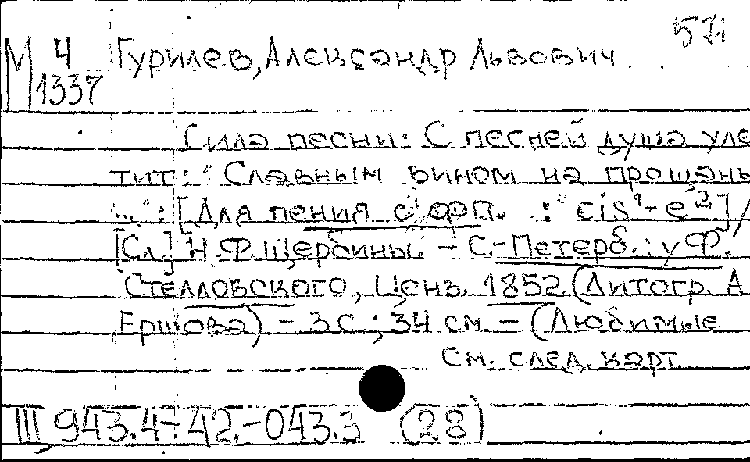 М 4 Гурилев, Александр Львович 571
1337
Сила песни: С песней душа уле
тит: "Славным вином на прощань
...": [Для пения с фп. : cis¹-e²]/
[Сл.] Н.Ф. Щербины. - С.-Петерб.: у Ф.
Стелловского, Ценз. 1852 (Литогр. А
Ершова) - 3 с.; 34 см. - (Любимые
См. след. карт.
III 943.4-42.-043.3 (28)